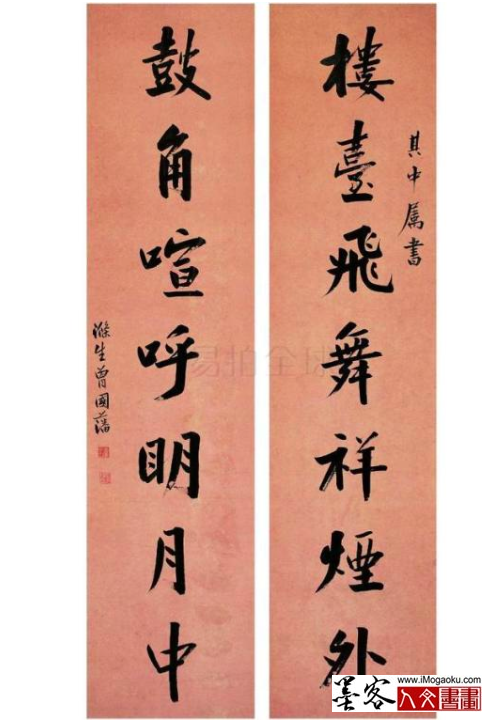 樓臺飛舞祥煙外
其中屬書
鼓角喧呼明月中
滌生曾國藩
易拍全球
www.iMogaoku.com
墨客人文書畫